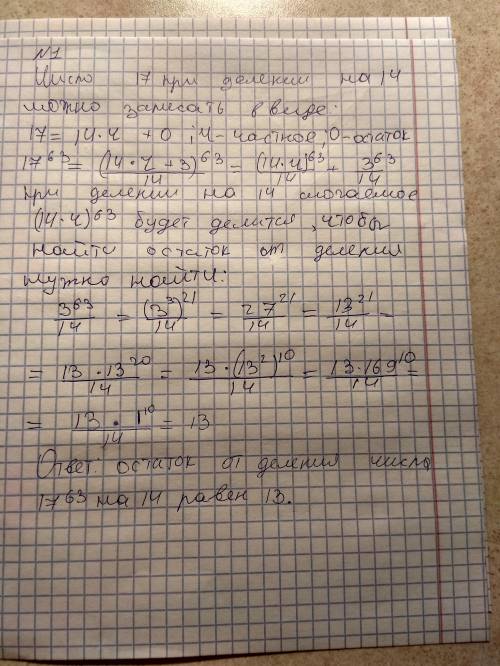 №1
Число 17 при делении на 14
можно записать в виде:
17 = 14·ч + О ; ч - частное ; О - остаток
17^63 = (14·ч + 3)^63/14 = (14·ч)^63/14 + 3^63/14
при делении на 14 слогаемое
(14·ч)^63 будет делится, чтобы
найти остаток от деления
нужно найти:
3^63/14 = (3^3)^21/14 = 27^21/14 = 13^21/14 =
= 13·13^20/14 = 13·(13^2)^10/14 = 13·169^10/14 =
= 13·1^10/14 = 13
Ответ: остаток от деления числа
17^63 на 14 равен 13.